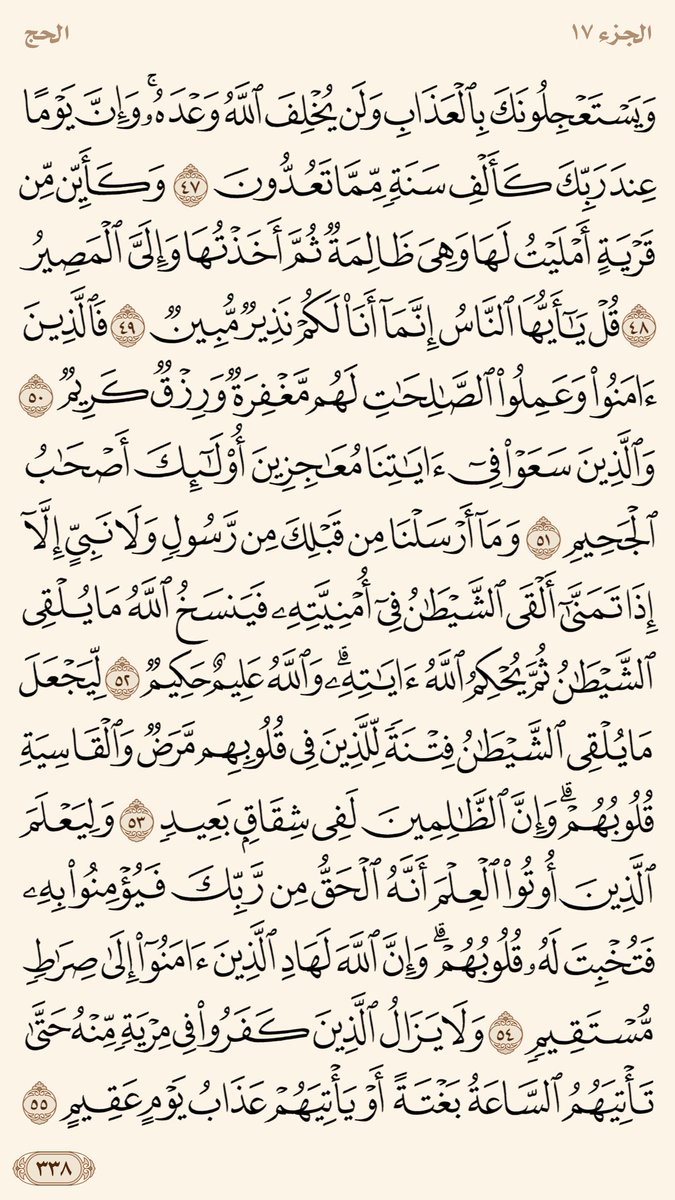 الجزء ١٧
الحج
وَيَسۡتَعۡجِلُونَكَ بِٱلۡعَذَابِ وَلَن يُخۡلِفَ ٱللَّهُ وَعۡدَهُۥۚ وَإِنَّ يَوۡمًا
عِندَ رَبِّكَ كَأَلۡفِ سَنَةٖ مِّمَّا تَعُدُّونَ ٤٧ وَكَأَيِّن مِّن
قَرۡيَةٍ أَمۡلَيۡتُ لَهَا وَهِيَ ظَالِمَةٞ ثُمَّ أَخَذۡتُهَا وَإِلَيَّ ٱلۡمَصِيرُ
٤٨ قُلۡ يَٰٓأَيُّهَا ٱلنَّاسُ إِنَّمَآ أَنَا۠ لَكُمۡ نَذِيرٞ مُّبِينٞ ٤٩ فَٱلَّذِينَ
ءَامَنُواْ وَعَمِلُواْ ٱلصَّٰلِحَٰتِ لَهُم مَّغۡفِرَةٞ وَرِزۡقٞ كَرِيمٞ ٥٠
وَٱلَّذِينَ سَعَوۡاْ فِيٓ ءَايَٰتِنَا مُعَٰجِزِينَ أُوْلَٰٓئِكَ أَصۡحَٰبُ
ٱلۡجَحِيمِ ٥١ وَمَآ أَرۡسَلۡنَا مِن قَبۡلِكَ مِن رَّسُولٖ وَلَا نَبِيٍّ إِلَّآ
إِذَا تَمَنَّىٰٓ أَلۡقَى ٱلشَّيۡطَٰنُ فِيٓ أُمۡنِيَّتِهِۦ فَيَنسَخُ ٱللَّهُ مَا يُلۡقِي
ٱلشَّيۡطَٰنُ ثُمَّ يُحۡكِمُ ٱللَّهُ ءَايَٰتِهِۦۗ وَٱللَّهُ عَلِيمٌ حَكِيمٞ ٥٢ لِّيَجۡعَلَ
مَا يُلۡقِي ٱلشَّيۡطَٰنُ فِتۡنَةٗ لِّلَّذِينَ فِي قُلُوبِهِم مَّرَضٞ وَٱلۡقَاسِيَةِ
قُلُوبُهُمۡۗ وَإِنَّ ٱلظَّٰلِمِينَ لَفِي شِقَاقِۭ بَعِيدٖ ٥٣ وَلِيَعۡلَمَ
ٱلَّذِينَ أُوتُواْ ٱلۡعِلۡمَ أَنَّهُ ٱلۡحَقُّ مِن رَّبِّكَ فَيُؤۡمِنُواْ بِهِۦ
فَتُخۡبِتَ لَهُۥ قُلُوبُهُمۡۗ وَإِنَّ ٱللَّهَ لَهَادِ ٱلَّذِينَ ءَامَنُوٓاْ إِلَىٰ صِرَٰطٖ
مُّسۡتَقِيمٖ ٥٤ وَلَا يَزَالُ ٱلَّذِينَ كَفَرُواْ فِي مِرۡيَةٖ مِّنۡهُ حَتَّىٰ
تَأۡتِيَهُمُ ٱلسَّاعَةُ بَغۡتَةً أَوۡ يَأۡتِيَهُمۡ عَذَابُ يَوۡمٍ عَقِيمٍ ٥٥
٣٣٨